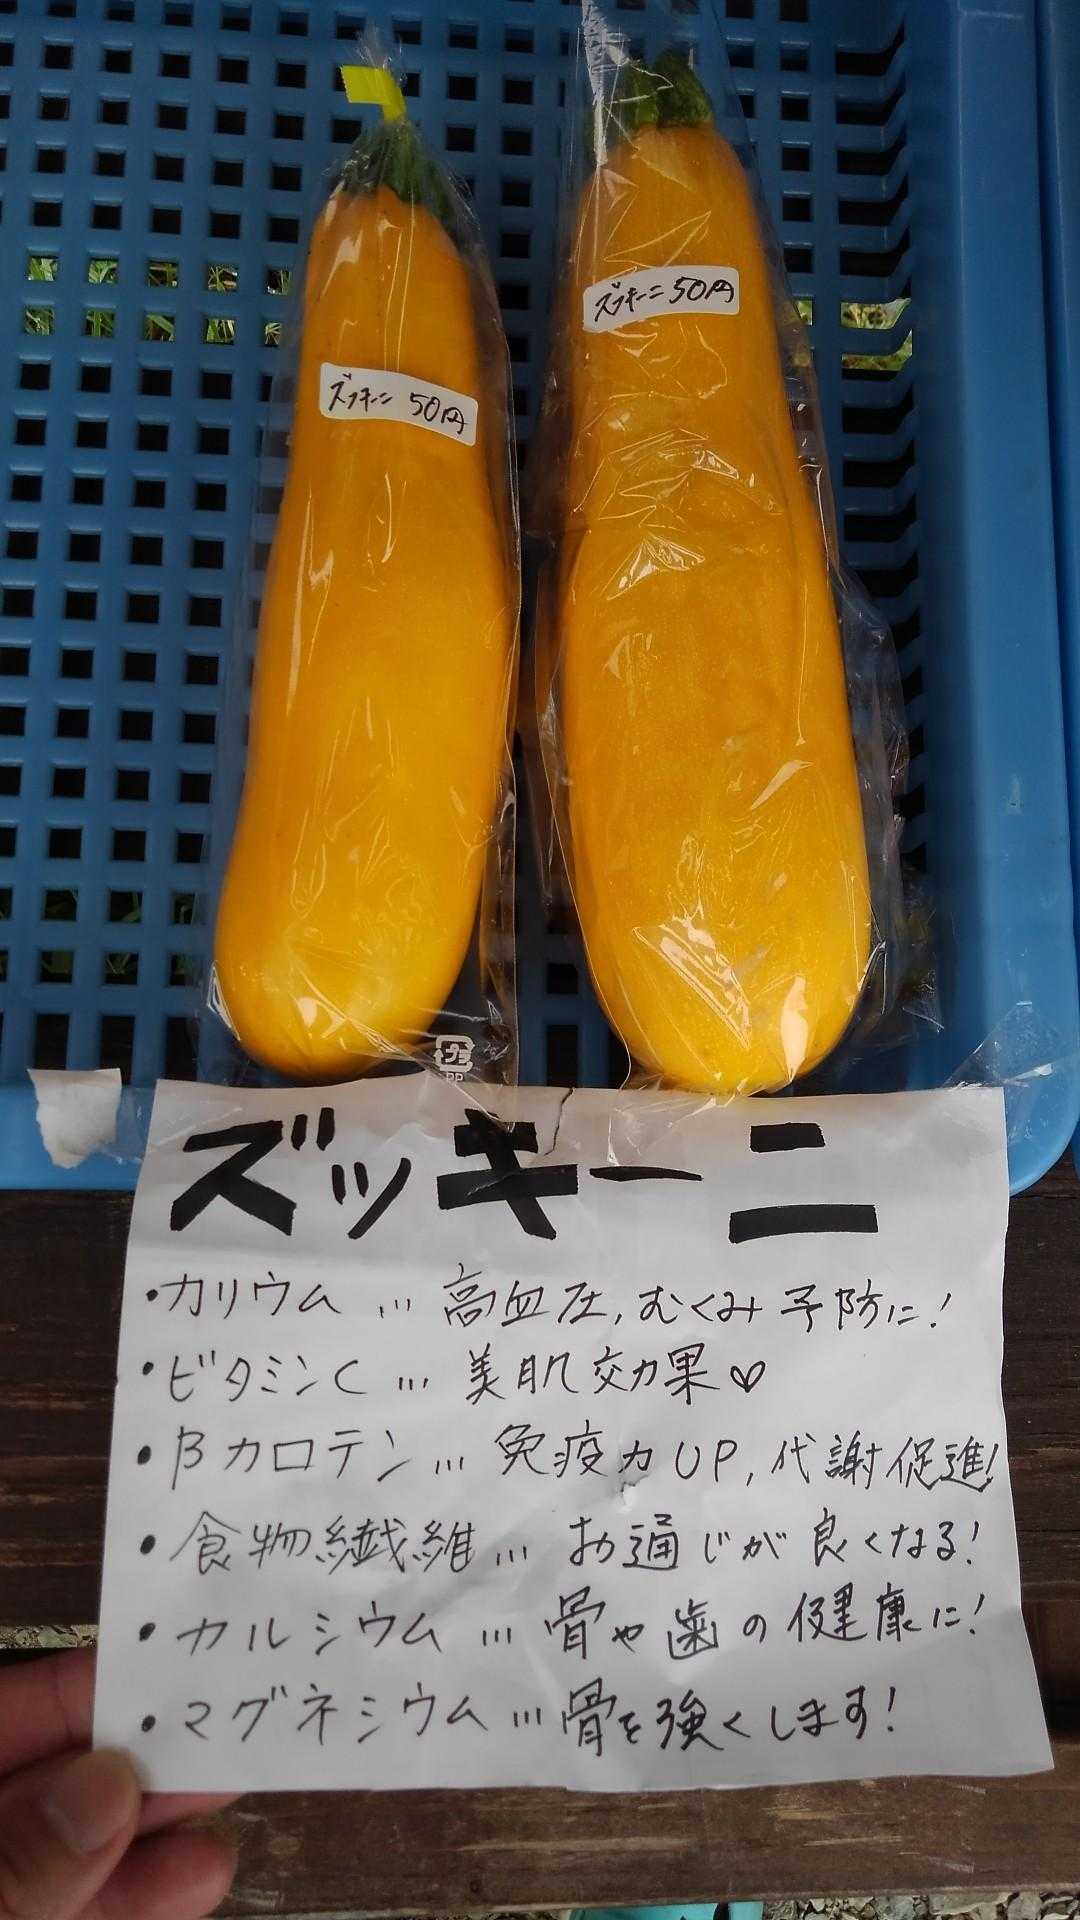 ズッキーニ 50円
ズッキーニ 50円
プラ
PP
ズッキーニ
・カリウム … 高血圧, むくみ予防に!
・ビタミンC … 美肌効果♡
・βカロテン … 免疫力UP, 代謝促進!
・食物繊維 … お通じが良くなる!
・カルシウム … 骨や歯の健康に!
・マグネシウム … 骨を強くします!